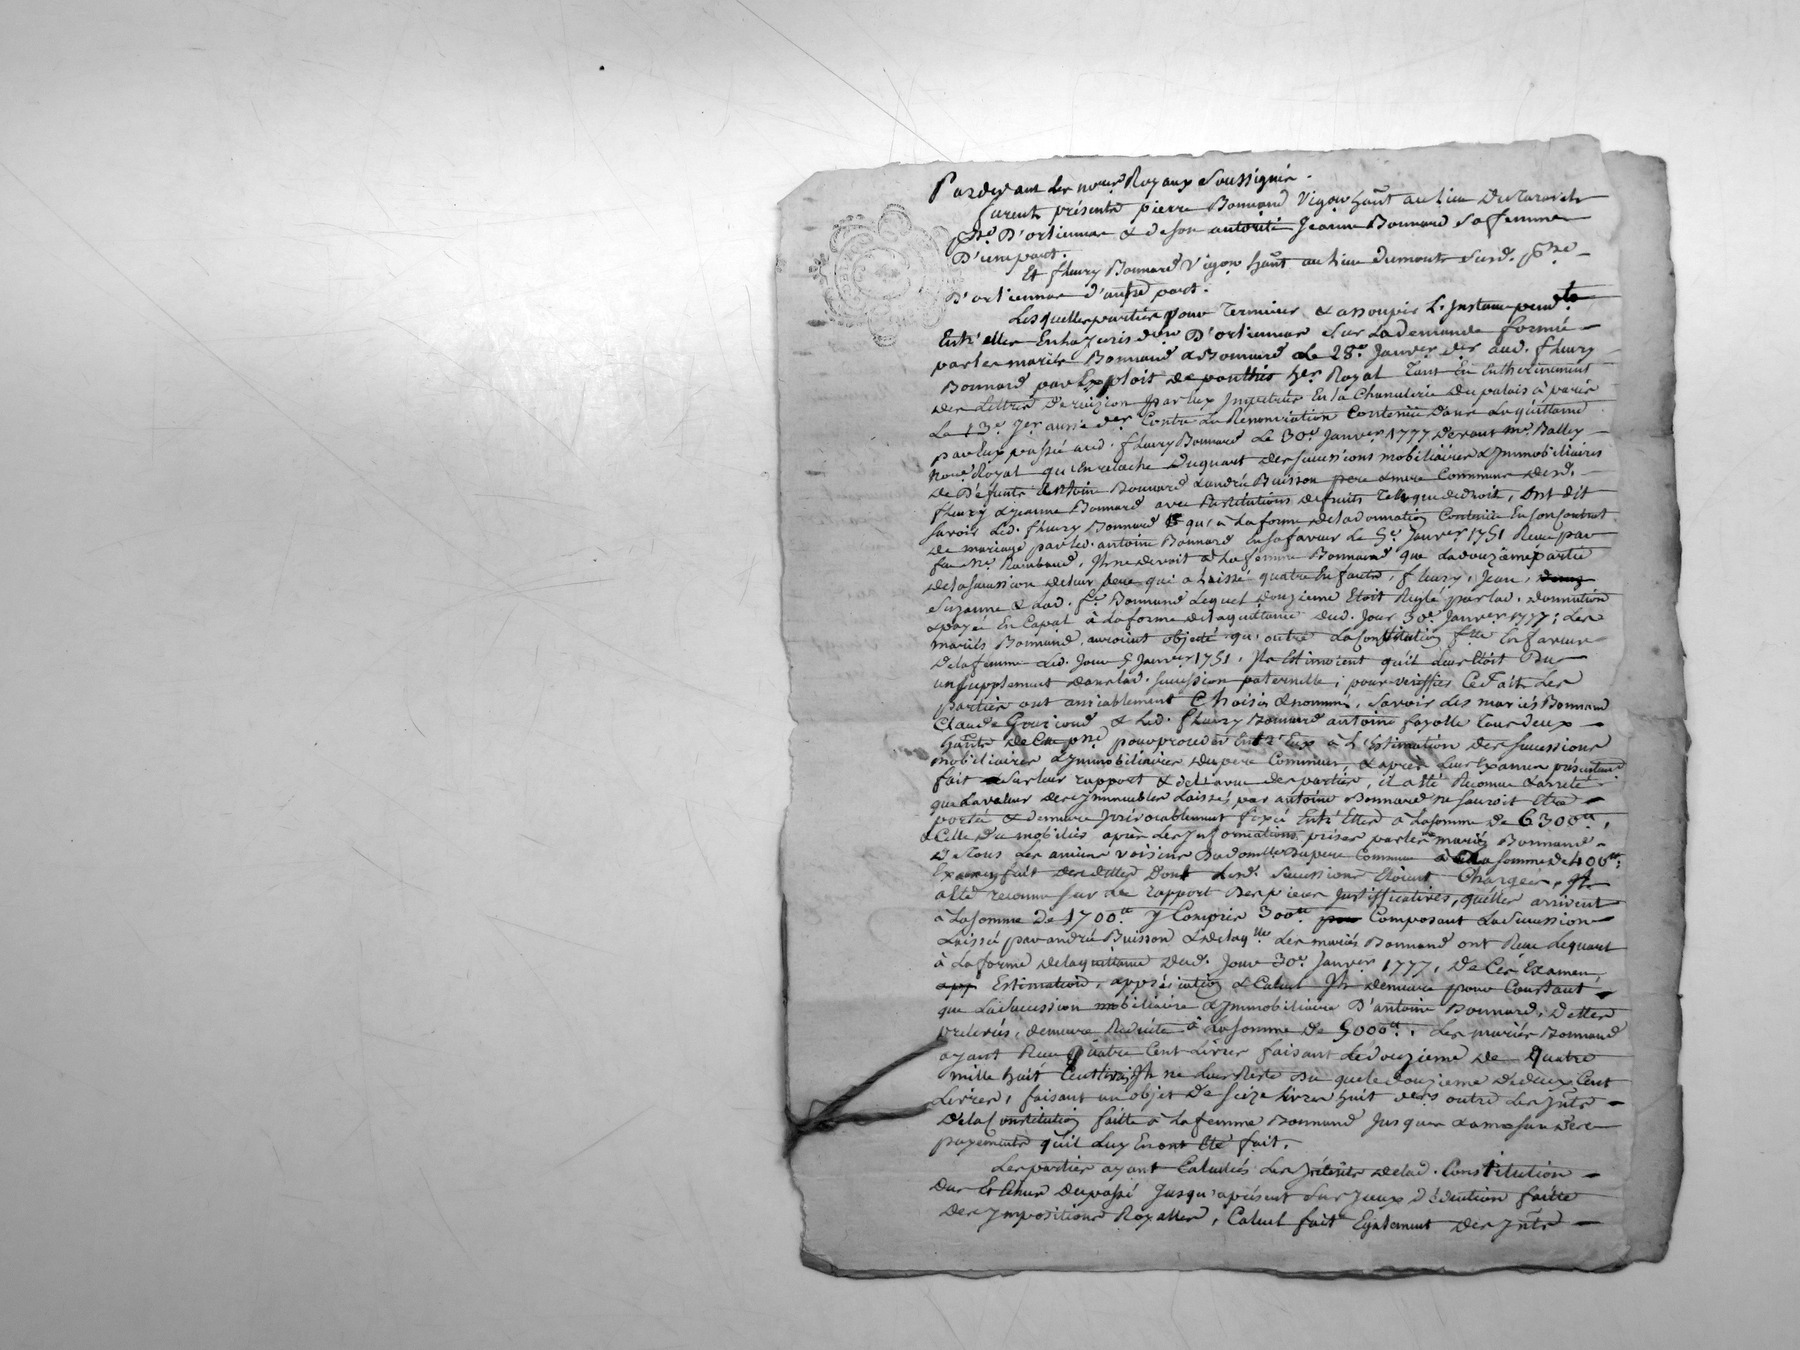 Pardevant les no.res Royaux Soussignés.
furent présents pierre Bonnand Vigon ha͠nt au lieu de
p͠sse D'orliennas & de son autorité Jeanne Bonnard Sa femme
D'une part.
Et fleury Bonnard Vigon ha͠nt au lieu dumonts Susd. p͠sse
D'orliennas d'autre part.
Lesquelles parties pour Terminer & assoupir L'Instance pend.te
Entr'elles En la Jurisd.on D'orliennas Sur La demande formée
par les mariés Bonnand & Bonnard le 28.e Janvier d.er aud. fleury
Bonnard par Exploit de ponthus h.er Royal Tant En Entherinement
des Lettres De rescizion par Eux Impetrées En la Chancelerie du palais à paris
Le 13.e J.er aussi d.er Contre La Renonciation Contenüe dans La quittance
par Eux passée aud. fleury Bonnard Le 30.e Janvier 1777 devant m.e Balley
No.re Royal qu'En relache du quart des successions mobiliaires & Immobiliaires
de Défunts Antoine Bonnard & andrée Buisson pere & mere Communs desd.
fleury & Jeanne Bonnard avec Restitutions de fruits Telle que de droit, Ont dit
Savoir Led. fleury Bonnard qu'à La forme de la donnation Contenüe En son Contrat
de mariage par led. antoine Bonnard En sa faveur Le 5.e Janvier 1751 Reçu par
feu m.e Raimbaud, Il ne devoit à La femme Bonnand que La douzième partie
de la succession de leur pere qui a Laissé quatre Enfants, fleury, Jean,
Suzanne & Lad. f.e Bonnand Lequel douzieme Etoit Reglé par lad. donnation
& payé En Capal à La forme de la quittance dud. Jour 30.e Janvier 1777; Les
mariés Bonnand auroient objecté qu'outre La Constitution f.tte En faveur
de la femme Led. Jour 5 Janvier 1751, Ils Estimoient qu'il Leur Etoit Du
un supplement dans lad. succession paternelle; pour veriffier Ce Fait Les
parties ont amiablement Choisis & nommé, Savoir les mariés Bonnand
Claude & Led. fleury Bonnard antoine fayolle Tous deux
ha͠nts de p͠sse pour proceder Entr'Eux à L'Estimation des successions
mobiliaires & Immobiliaires du pere Commun, & après Leur Examen
fait Sur leur rapport & de l'aveu des parties, il a Eté Reconnu & arreté
que La valeur des Immeubles Laissés par antoine Bonnard ne sauroit Etre
portée & demeure Irrévocablement fixée Entr'Elles à La somme de 6300 ₶,
& Celle du mobilier après Les Informations prises par les mariés Bonnand
de Tous Les anciens voisins Du domicille du pere Commun à La somme de 400 ₶;
Examen fait des dettes Dont Lesd. Successions Etoient Chargées, Il
a Eté reconnu sur Le rapport Des pieces Justifficatives, qu'elles arrivent
à La somme De 1700 ₶ y Compris 300 ₶ Composant La succession
Laissée par andrée Buisson & de laq.lle Les mariés Bonnand ont Reçu Le quart
à La forme de la quittance dud. Jour 30.e Janvier 1777, De Ces Examen,
Estimation, appréciation & Calcul Il demeure pour Constant
que La succession mobiliaire & Immobiliaire D'antoine Bonnard, dettes
prelevés, demeure Reduite à La somme de 5000 ₶. Les mariés Bonnand
ayant Reçu Quatre Cent Livres faisant Le douzieme de Quatre
mille huit Cent livres Il ne leur Reste Du que le douzieme de deux Cent
Livres, faisant un objet De Seize Livres huit den.s outre Les Int.s
de la Constitution faitte à La femme Bonnand Jusques & a mesure des
payements qu'il Luy En ont Eté fait.
Les parties ayant Calculés Les Intérêts de lad. Constitution
Dus Et Echus du passé Jusqu'apresent Sur Iceux déduction faitte
des Impositions Royalles, Calcul fait Egalement des Int.s